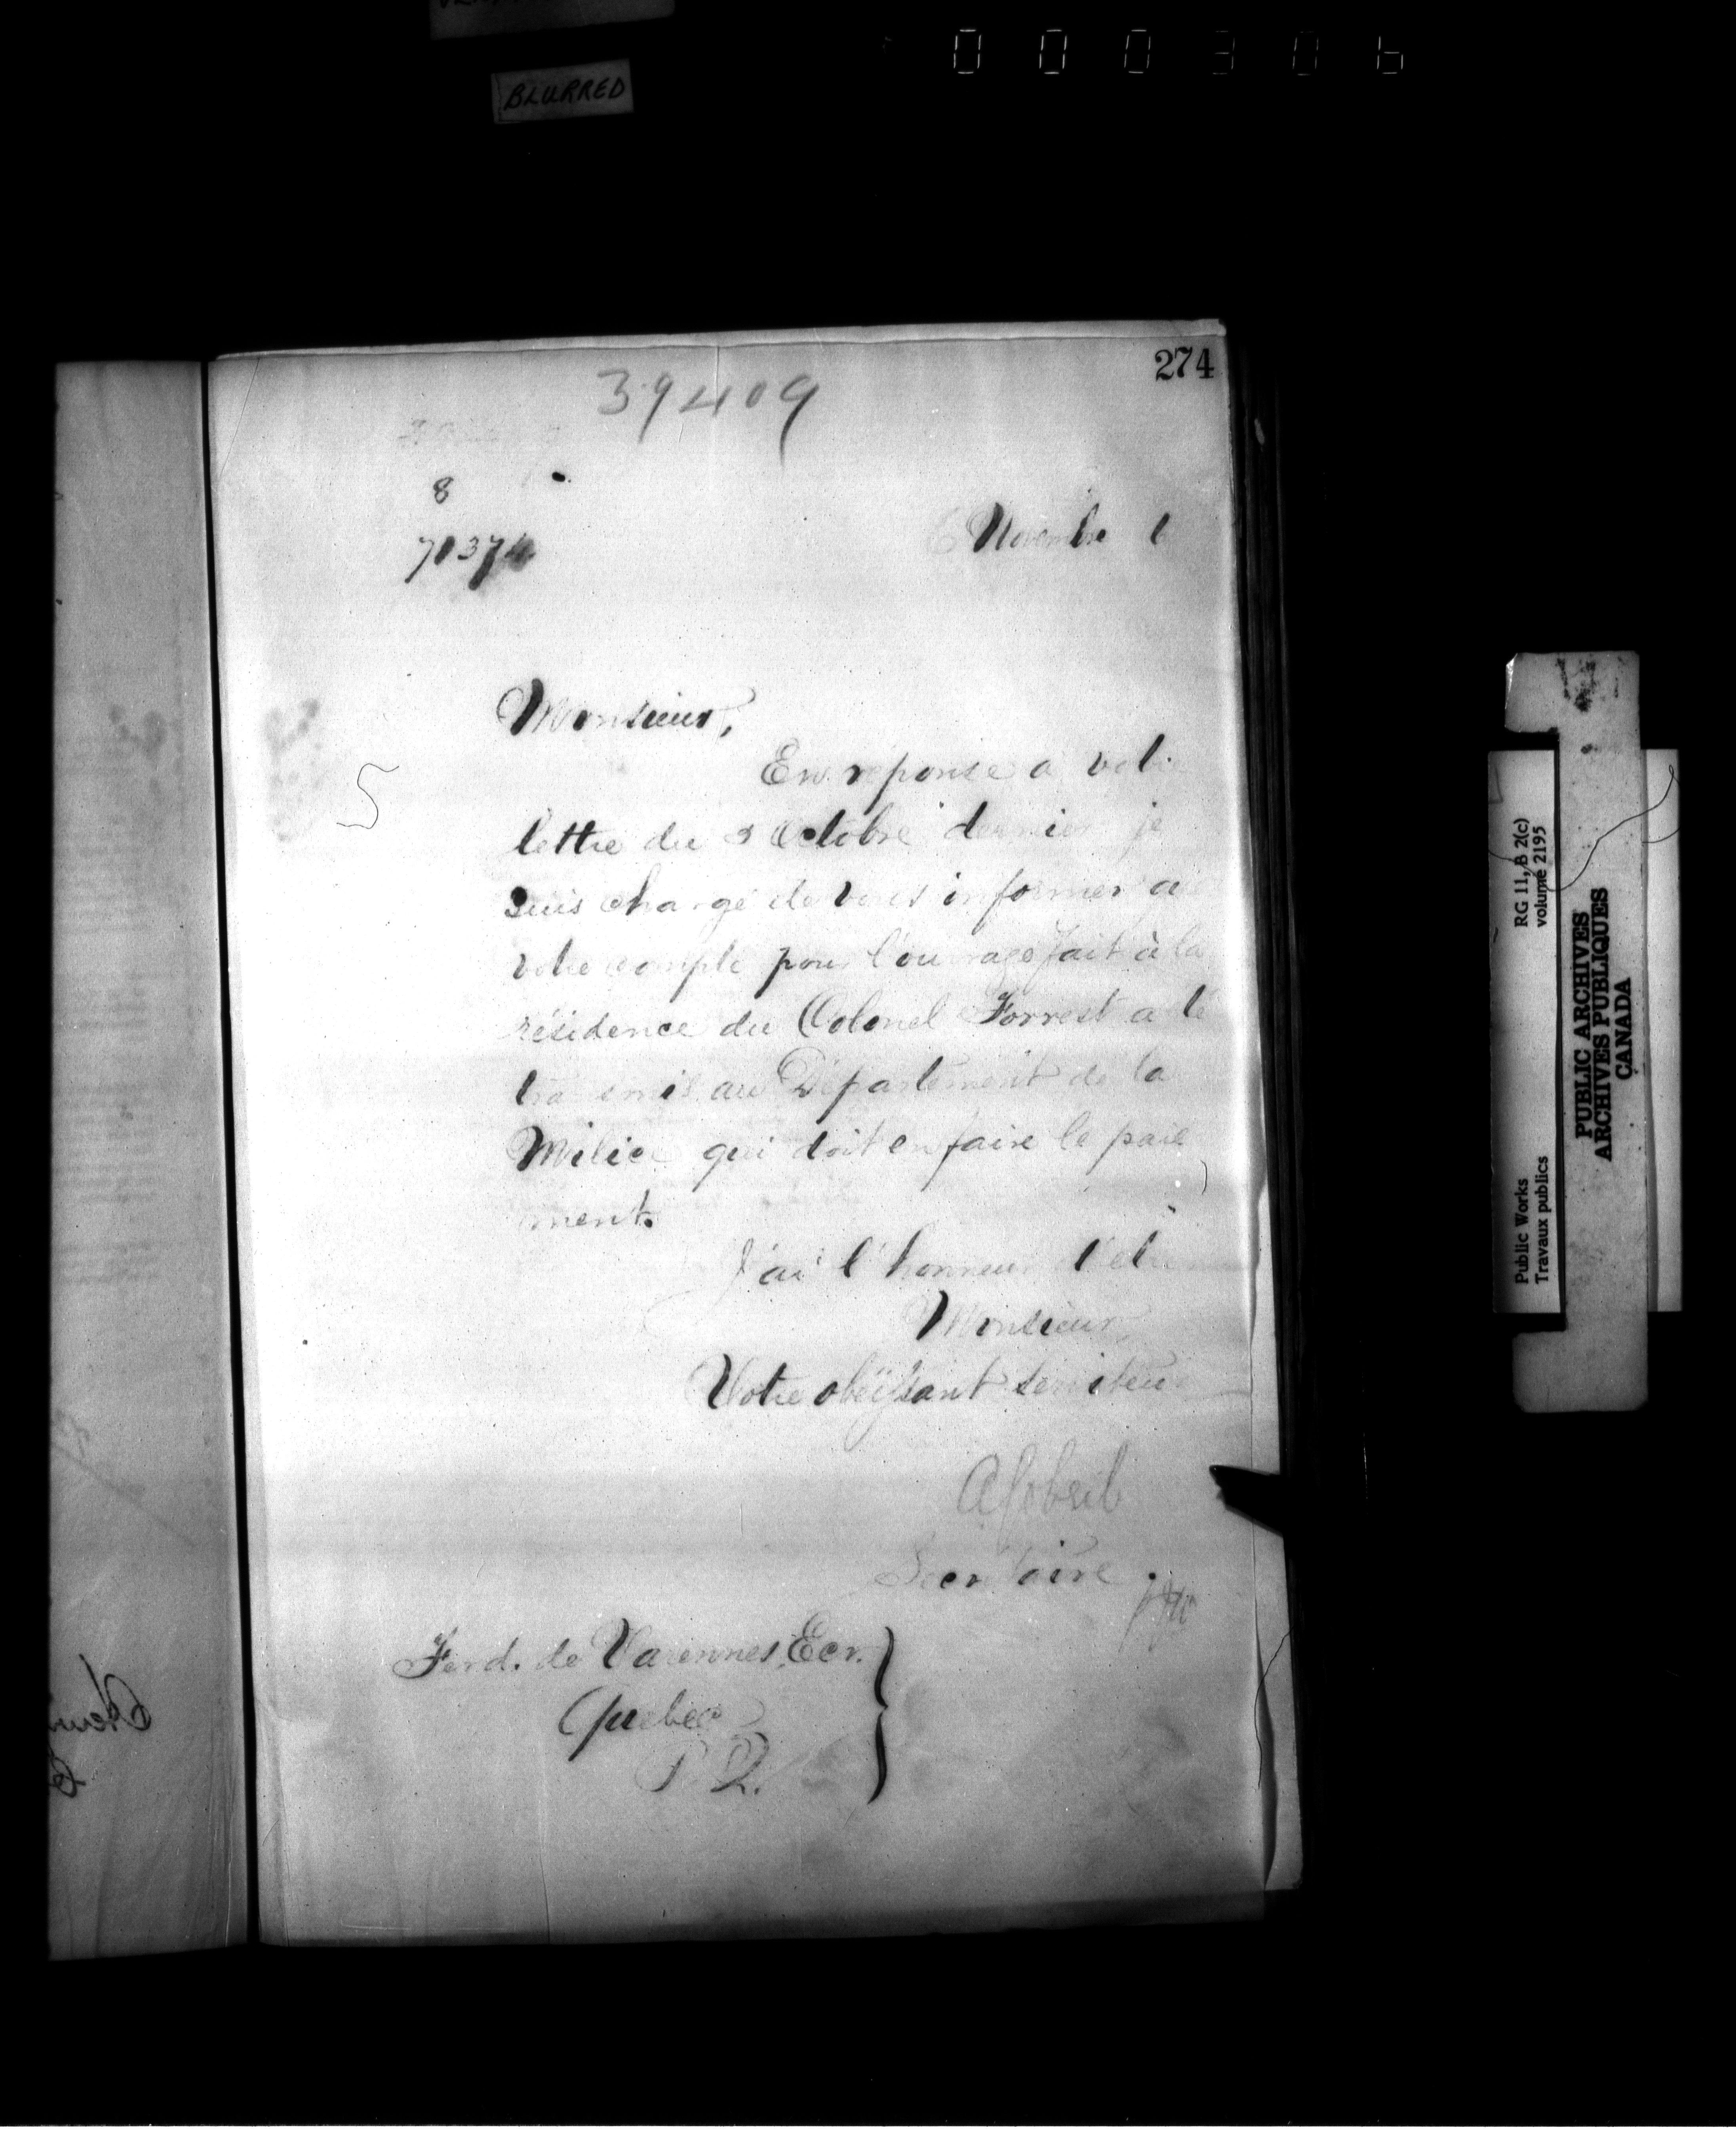 BLURRED
000306
274
39409
8
71374
6 Novembre 6
Monsieur,
En reponse a votre
lettre du 3 Octobre dernier je
suis chargé de vous informer que
votre compte pour l'ouvrage fait à la
résidence du Colonel Forrest a été
transmis au Département de la
Milice qui doit en faire le paie
ment.
J'ai l'honneur d'être
Monsieur,
Votre obéissant serviteur
A Gobeil
Secrétaire.
Ferd. de Varennes, Ecr.
Quebec
P. Q.
Public Works RG 11, B 2(c)
Travaux publics volume 2195
PUBLIC ARCHIVES
ARCHIVES PUBLIQUES
CANADA